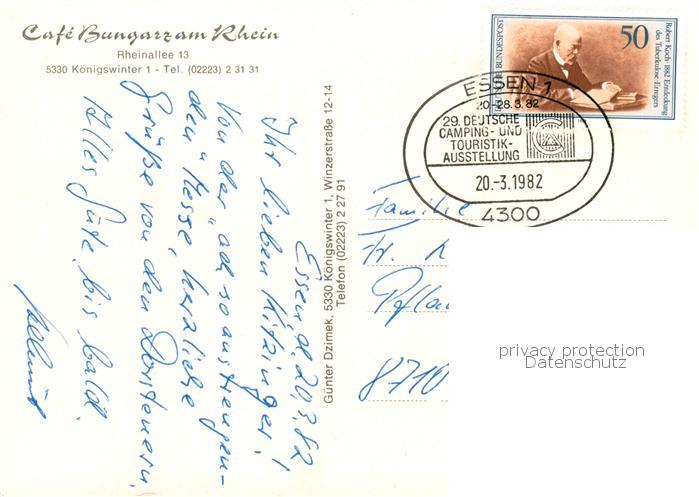 Café Bungarz am Rhein
Rheinallee 13
5330 Königswinter 1 - Tel. (02223) 2 31 31
Essen, d. 20.3.82
Ihr lieben Kitzinger!
Von der "ach so anstrengen-
den" Messe, herzliche
Grüße von den Dorstenern.
Alles Gute, bis bald.
Günter Dzimek, 5330 Königswinter 1, Winzerstraße 12-14
Telefon (02223) 2 27 91
50
DEUTSCHE BUNDESPOST
Robert Koch · 1882 Entdeckung
des Tuberkulose-Erregers
ESSEN 1
20.-28.3.82
29. DEUTSCHE
CAMPING- UND
TOURISTIK-
AUSSTELLUNG
20.-3.1982
4300
Familie
8710
privacy protection
Datenschutz